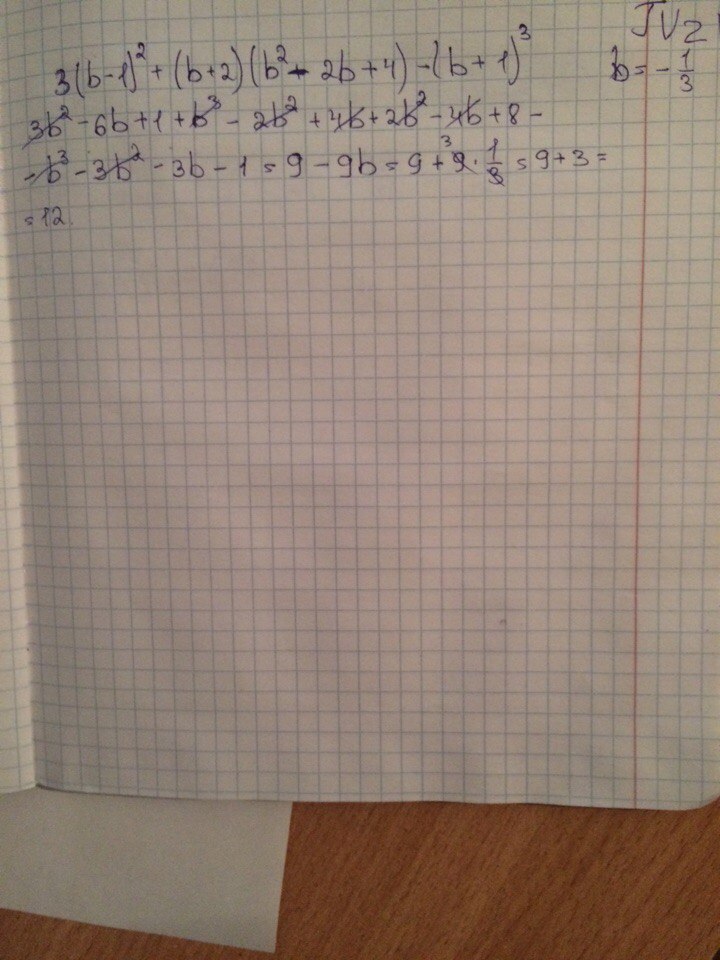 3(b-1)² + (b+2)(b² - 2b + 4) - (b + 1)³
b = -1/3
3b² - 6b + 1 + b³ - 2b² + 4b + 2b² - 4b + 8 -
- b³ - 3b² - 3b - 1 = 9 - 9b = 9 + ³9 · 1/3 = 9 + 3 =
= 12.